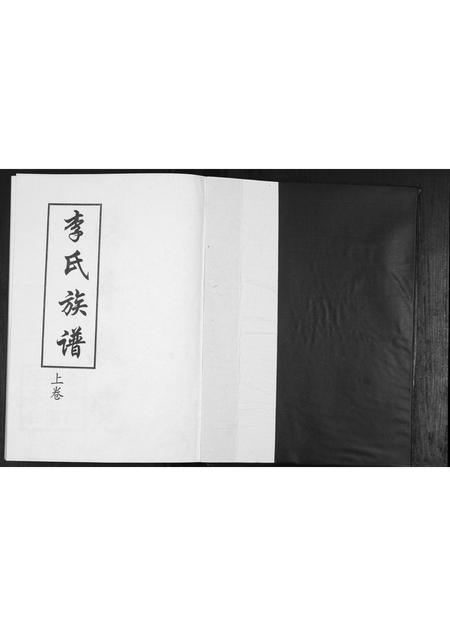 李氏族谱
上卷